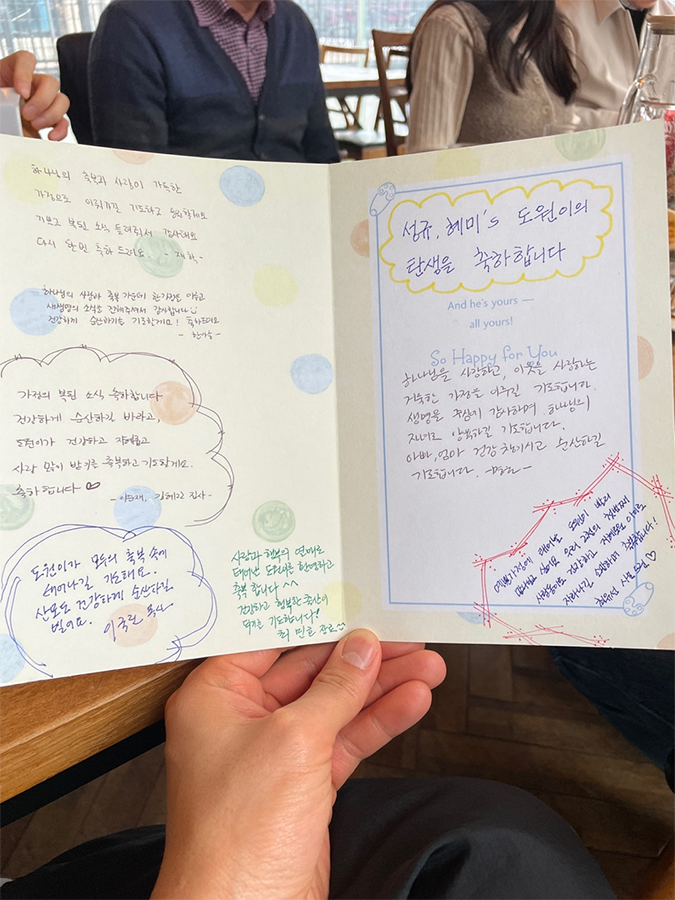 하나님의 축복과 사랑이 가득한
가정으로 이뤄가길 기도하고 응원할게요
기쁘고 복된 소식 들려줘서 감사해요
다시 한번 축하 드려요 - 재학 -
하나님의 사랑과 축복 가운데 한가정을 이루고
새생명의 소식을 전해주셔서 감사합니다 ☺
건강하게 순산하기를 기도할게요! 축하드려요
가정의 복된 소식 축하합니다
건강하게 순산하길 바라고,
도원이가 건강하고 지혜롭고
사랑 많이 받기를 축복하고 기도할게요.
축하합니다 ♡
집사 -
도원이가 모두의 축복 속에
태어나길 기도해요.
산모도 건강하게 순산하길
빌어요. 이국진 목사
사랑과 행복의 열매로
태어난 도원이를 환영하고
축복 합니다 ^^
건강하고 행복한 출산이
되기를 기도합니다!
최
성규, 혜미's 도원이의
탄생을 축하합니다
And he's yours —
all yours!
So Happy for You
하나님을 사랑하고, 이웃을 사랑하는
거룩한 가정을 이루길 기도합니다.
생명을 주심에 감사하며 하나님의
지혜로 양육하길 기도합니다.
아빠, 엄마 건강 챙기시고 순산하길
기도합니다.
태어난 도원이
우리 교회의 첫번째
건강하고 지혜로운 아이로
자라나길 소망하며 축복합니다!
♡